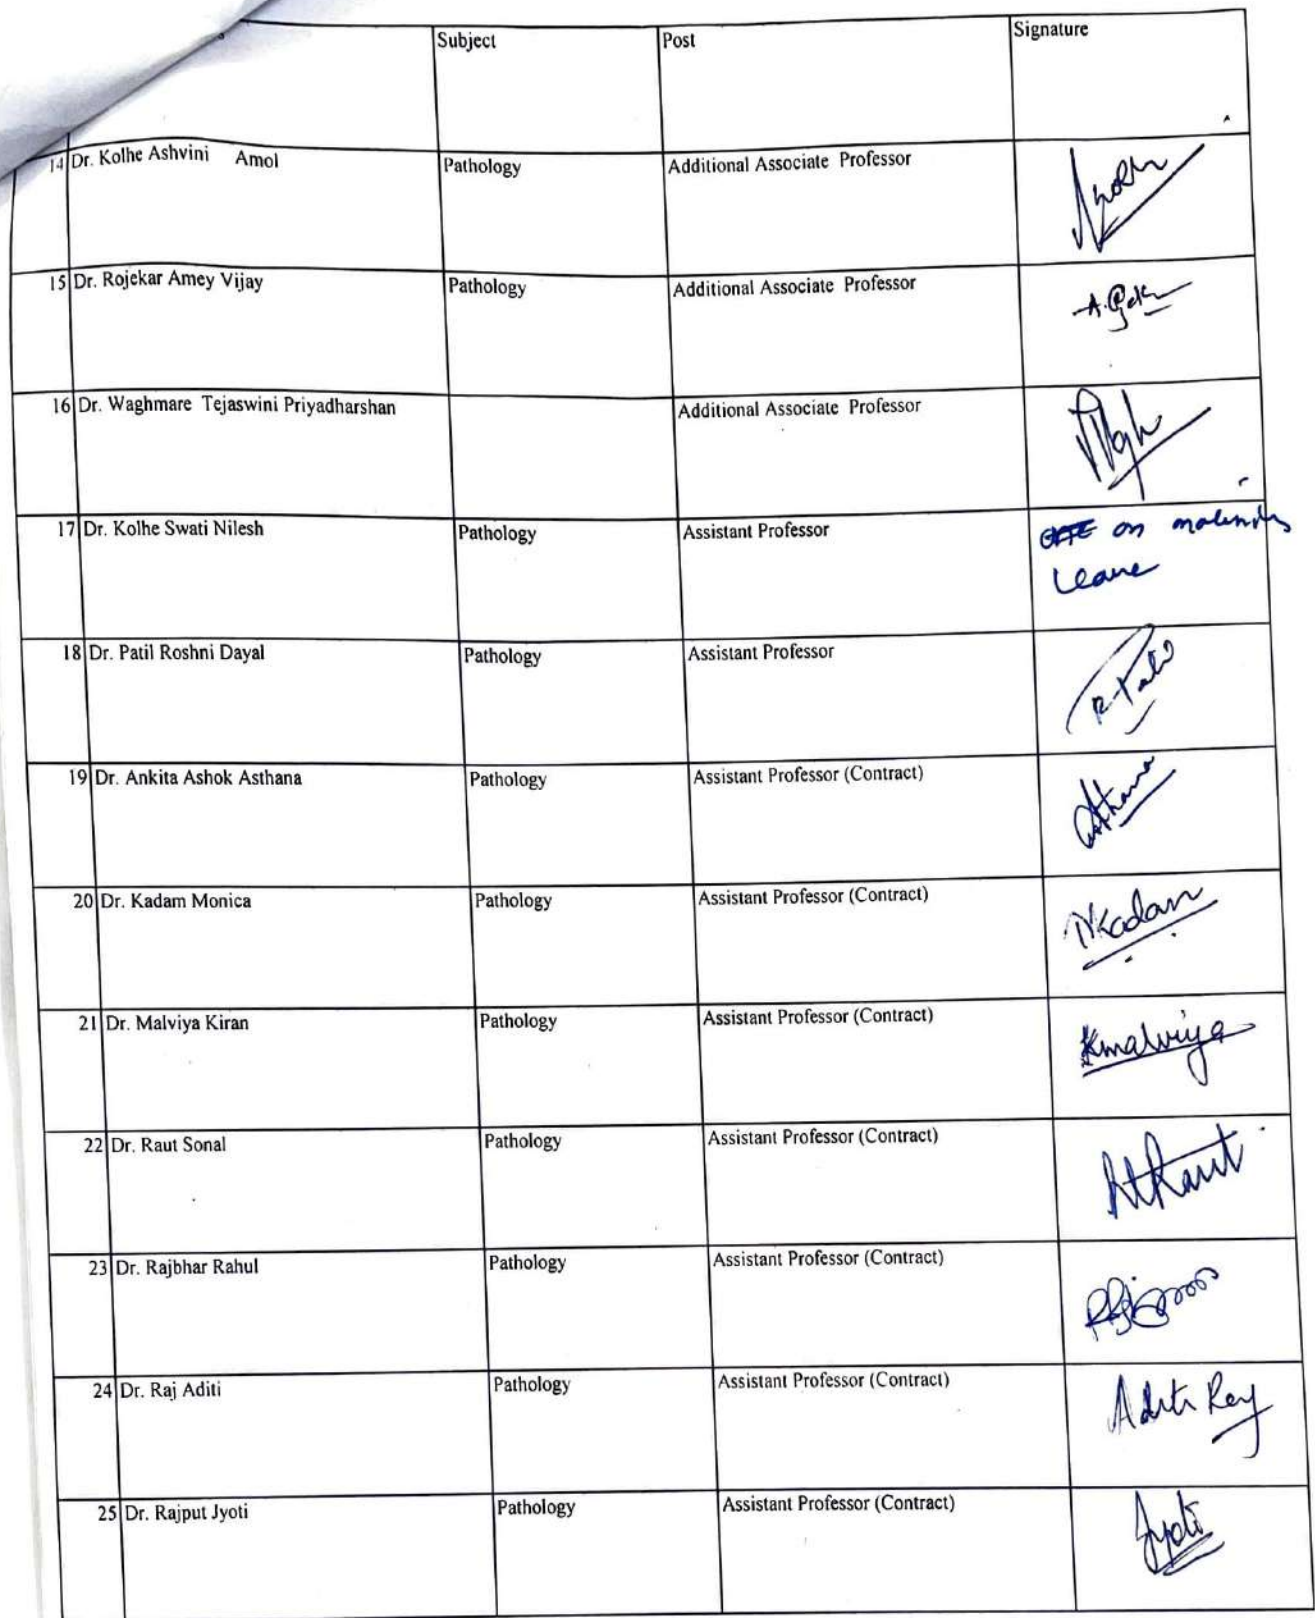 Subject Post Signature
14 Dr. Kolhe Ashvini Amol Pathology Additional Associate Professor
15 Dr. Rojekar Amey Vijay Pathology Additional Associate Professor
16 Dr. Waghmare Tejaswini Priyadharshan Additional Associate Professor
17 Dr. Kolhe Swati Nilesh Pathology Assistant Professor on maternity
Leave
18 Dr. Patil Roshni Dayal Pathology Assistant Professor R. Patil
19 Dr. Ankita Ashok Asthana Pathology Assistant Professor (Contract) Asthana
20 Dr. Kadam Monica Pathology Assistant Professor (Contract) MKadam
21 Dr. Malviya Kiran Pathology Assistant Professor (Contract) Kmalviya
22 Dr. Raut Sonal Pathology Assistant Professor (Contract) Raut
23 Dr. Rajbhar Rahul Pathology Assistant Professor (Contract)
24 Dr. Raj Aditi Pathology Assistant Professor (Contract) Aditi Raj
25 Dr. Rajput Jyoti Pathology Assistant Professor (Contract) Jyoti